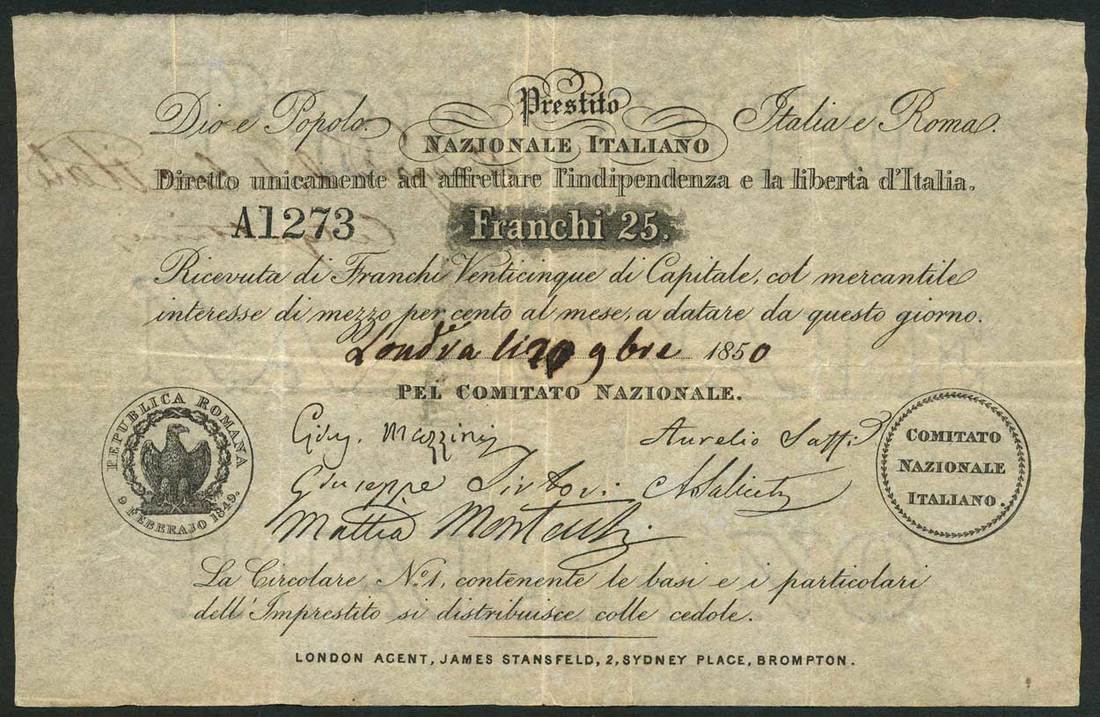 Prestito
Dio e Popolo. Italia e Roma.
NAZIONALE ITALIANO
Diretto unicamente ad affrettare l'indipendenza e la libertà d'Italia.
A1273 Franchi 25.
Ricevuta di Franchi Venticinque di Capitale, col mercantile
interesse di mezzo per cento al mese, a datare da questo giorno.
Londra li 9bre 1850
PEL COMITATO NAZIONALE.
REPUBLICA ROMANA
9 FEBBRAJO 1849.
Gius. Mazzini Aurelio Saffi
Giuseppe Sirtori ASaliceti
Mattia Montecchi
COMITATO
NAZIONALE
ITALIANO.
La Circolare No. 1, contenente le basi e i particolari
dell'Imprestito si distribuisce colle cedole.
LONDON AGENT, JAMES STANSFELD, 2, SYDNEY PLACE, BROMPTON.